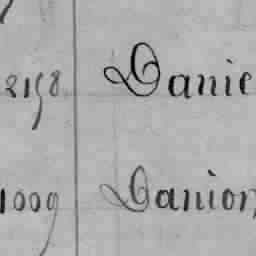 2198 Danie
1009 Danion